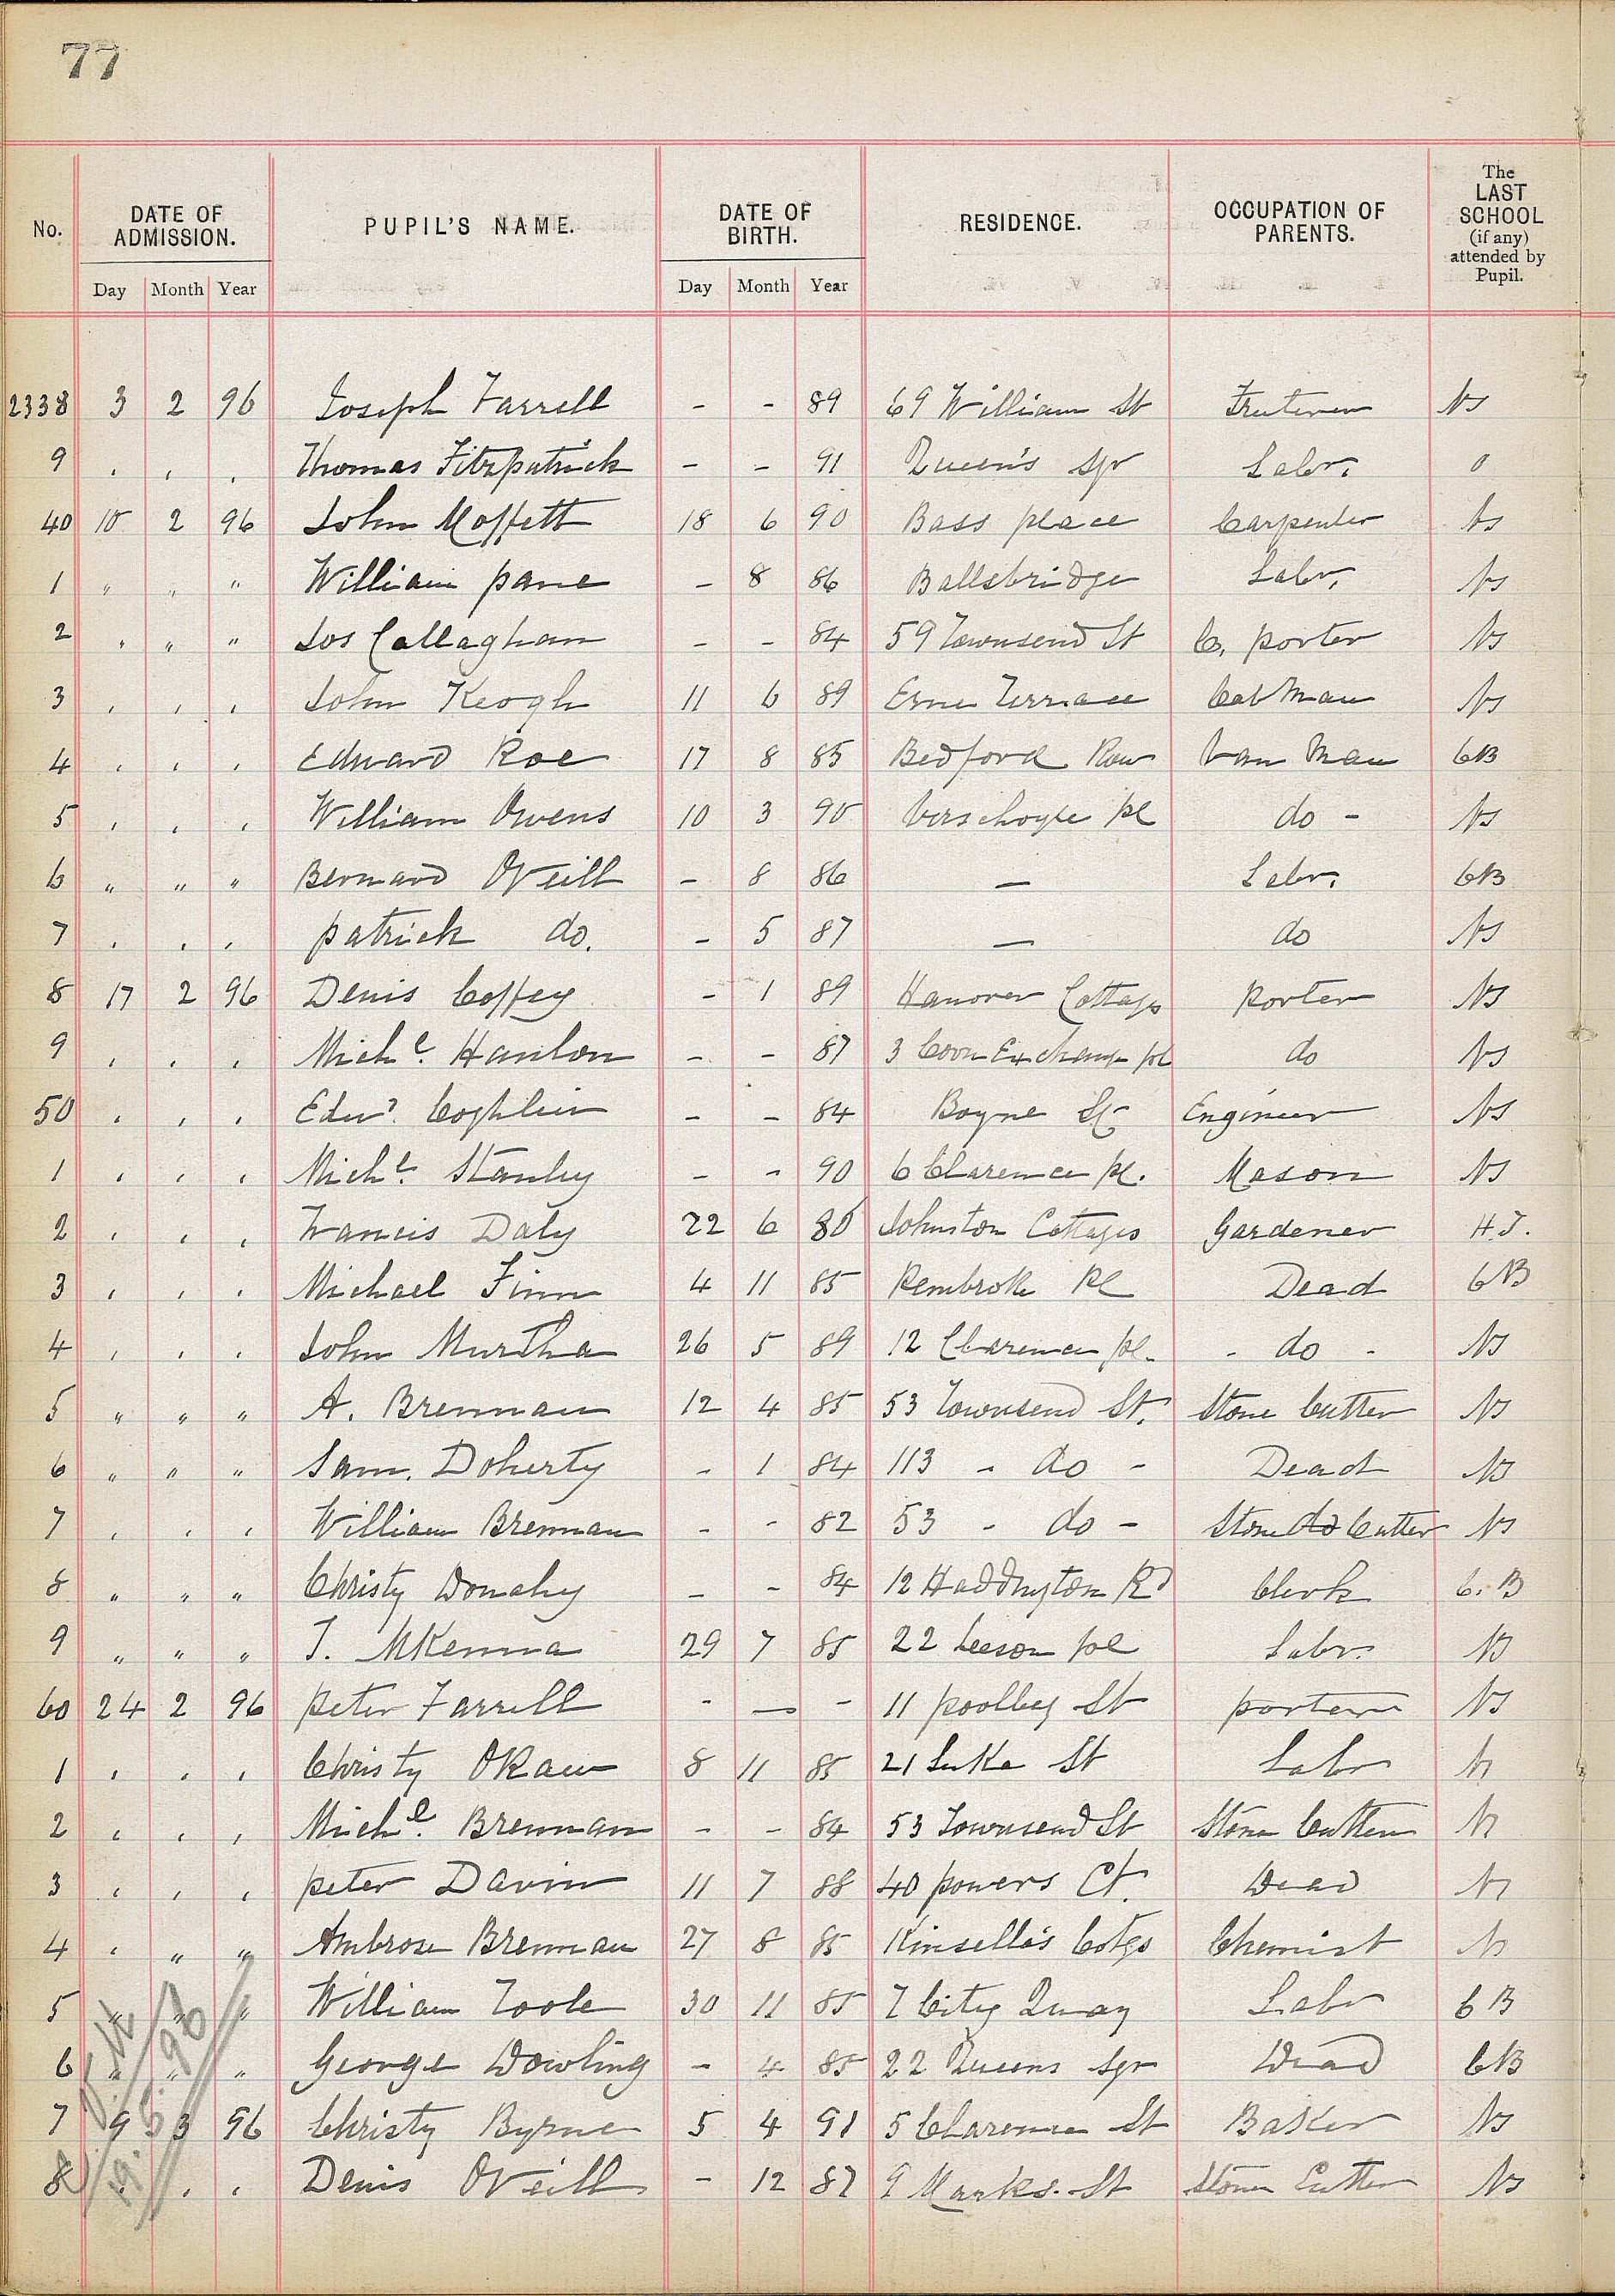 77
No. DATE OF ADMISSION. PUPIL'S NAME. DATE OF BIRTH. RESIDENCE. OCCUPATION OF PARENTS. The LAST SCHOOL (if any) attended by Pupil.
Day Month Year Day Month Year
2338 3 2 96 Joseph Farrell - - 89 69 William St NS
9 . , . Thomas Fitzpatrick - - 91 Queen's Sqr Labr. 0
40 10 2 96 John Moffett 18 6 90 Bass place Carpenter NS
1 " " " William pane - 8 86 Ballsbridge Labr. NS
2 , " " Jos Callaghan - - 84 59 Townsend St C. porter NS
3 , , , John Keogh 11 6 89 Erne Terrace Cab Man NS
4 , , , Edward Roe 17 8 85 Bedford Row Van Man CB
5 , , , William Owens 10 3 90 Verschoyle pl do - NS
6 " " " Bernard ONeill - 8 86 — Labr. CB
7 , , , patrick do. - 5 87 — do NS
8 17 2 96 Denis Coffey - 1 89 Hanover Cottags porter NS
9 , , , Michl. Hanlon - - 87 3 Corn Exchange pl do NS
50 , , , Edwd. Coghlin - - 84 Boyne St Engineer NS
1 , , , Michl. Stanley - - 90 6 Clarence pl. Mason NS
2 , , , Francis Daly 22 6 86 Johnston Cottages Gardener H.J.
3 , , , Michael Finn 4 11 85 Pembroke Pl Dead CB
4 , , , John Murtha 26 5 89 12 Clarence pl. - do - NS
5 " " " A. Brennan 12 4 85 53 Townsend St. Stone Cutter NS
6 " " " Sam. Doherty - 1 84 113 - do - Dead NS
7 , , , William Brennan - - 82 53 - do - Stone do Cutter NS
8 " " " Christy Donahy - - 84 12 Haddington Rd Clerk C. B
9 " " " J. McKenna 29 7 85 22 Leeson pl Labr. NS
60 24 2 96 peter Farrell - — - 11 poolbeg St porter NS
1 , , , Christy OKane 8 11 85 21 Luke St Labr NS
2 , , , Michl. Brennan - - 84 53 Townsend St Stone Cutter NS
3 , , , peter Davin 11 7 88 40 powers Ct. Dead NS
4 , " " Ambrose Brennan 27 8 85 Kinsella's Cotgs Chemist NS
5 " " " William Toole 30 11 85 7 City Quay Labr CB
6 " " " George Dowling - 4 85 22 Queens Sqr Dead CB
7 9 3 96 Christy Byrne 5 4 91 5 Clarence St Baker NS
8 , , , Denis ONeill - 12 87 9 Marks. St Stone Cutter NS